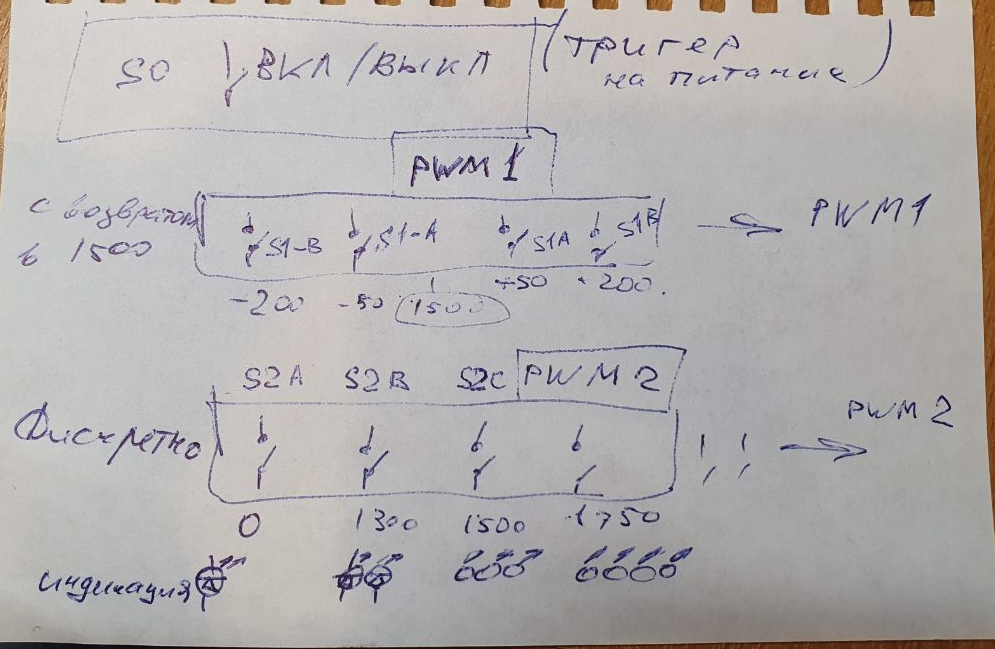 S0 ВКЛ/ВЫКЛ (тригер
на питание)
PWM1
с возвратом
в 1500
S1-B S1-A S1A S1B PWM1
-200 -50 1500 +50 +200.
S2A S2B S2C PWM2
Дискретно
PWM2
0 1300 1500 1750
индикация